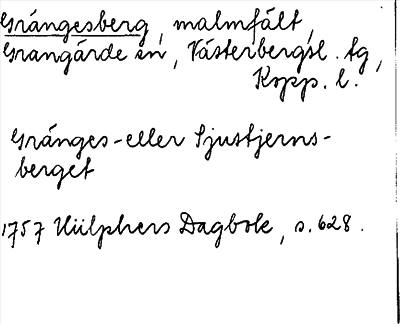 Grängesberg, malmfält,
Grangärde sn, Västerbergsl. tg,
Kopp. l.
Gränges- eller Sjustjerns-
berget
1757 Hülphers Dagbok, s. 628.